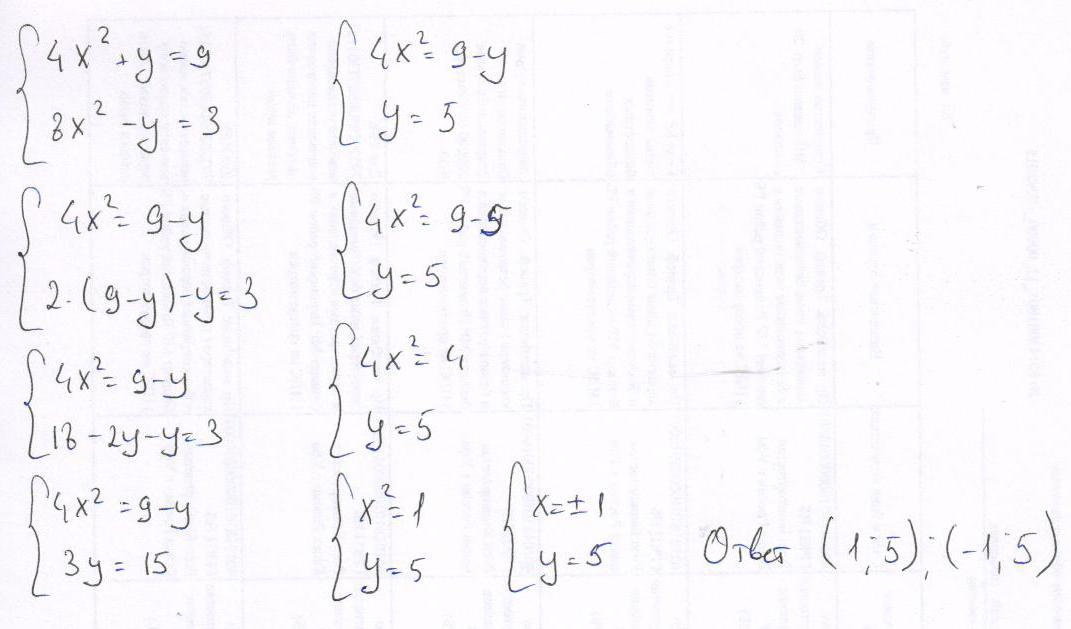 4x² + y = 9
8x² - y = 3
4x² = 9 - y
2·(9 - y) - y = 3
4x² = 9 - y
18 - 2y - y = 3
4x² = 9 - y
3y = 15
4x² = 9 - y
y = 5
4x² = 9 - 5
y = 5
4x² = 4
y = 5
x² = 1
y = 5
x = ± 1
y = 5
Ответ (1; 5); (-1; 5)